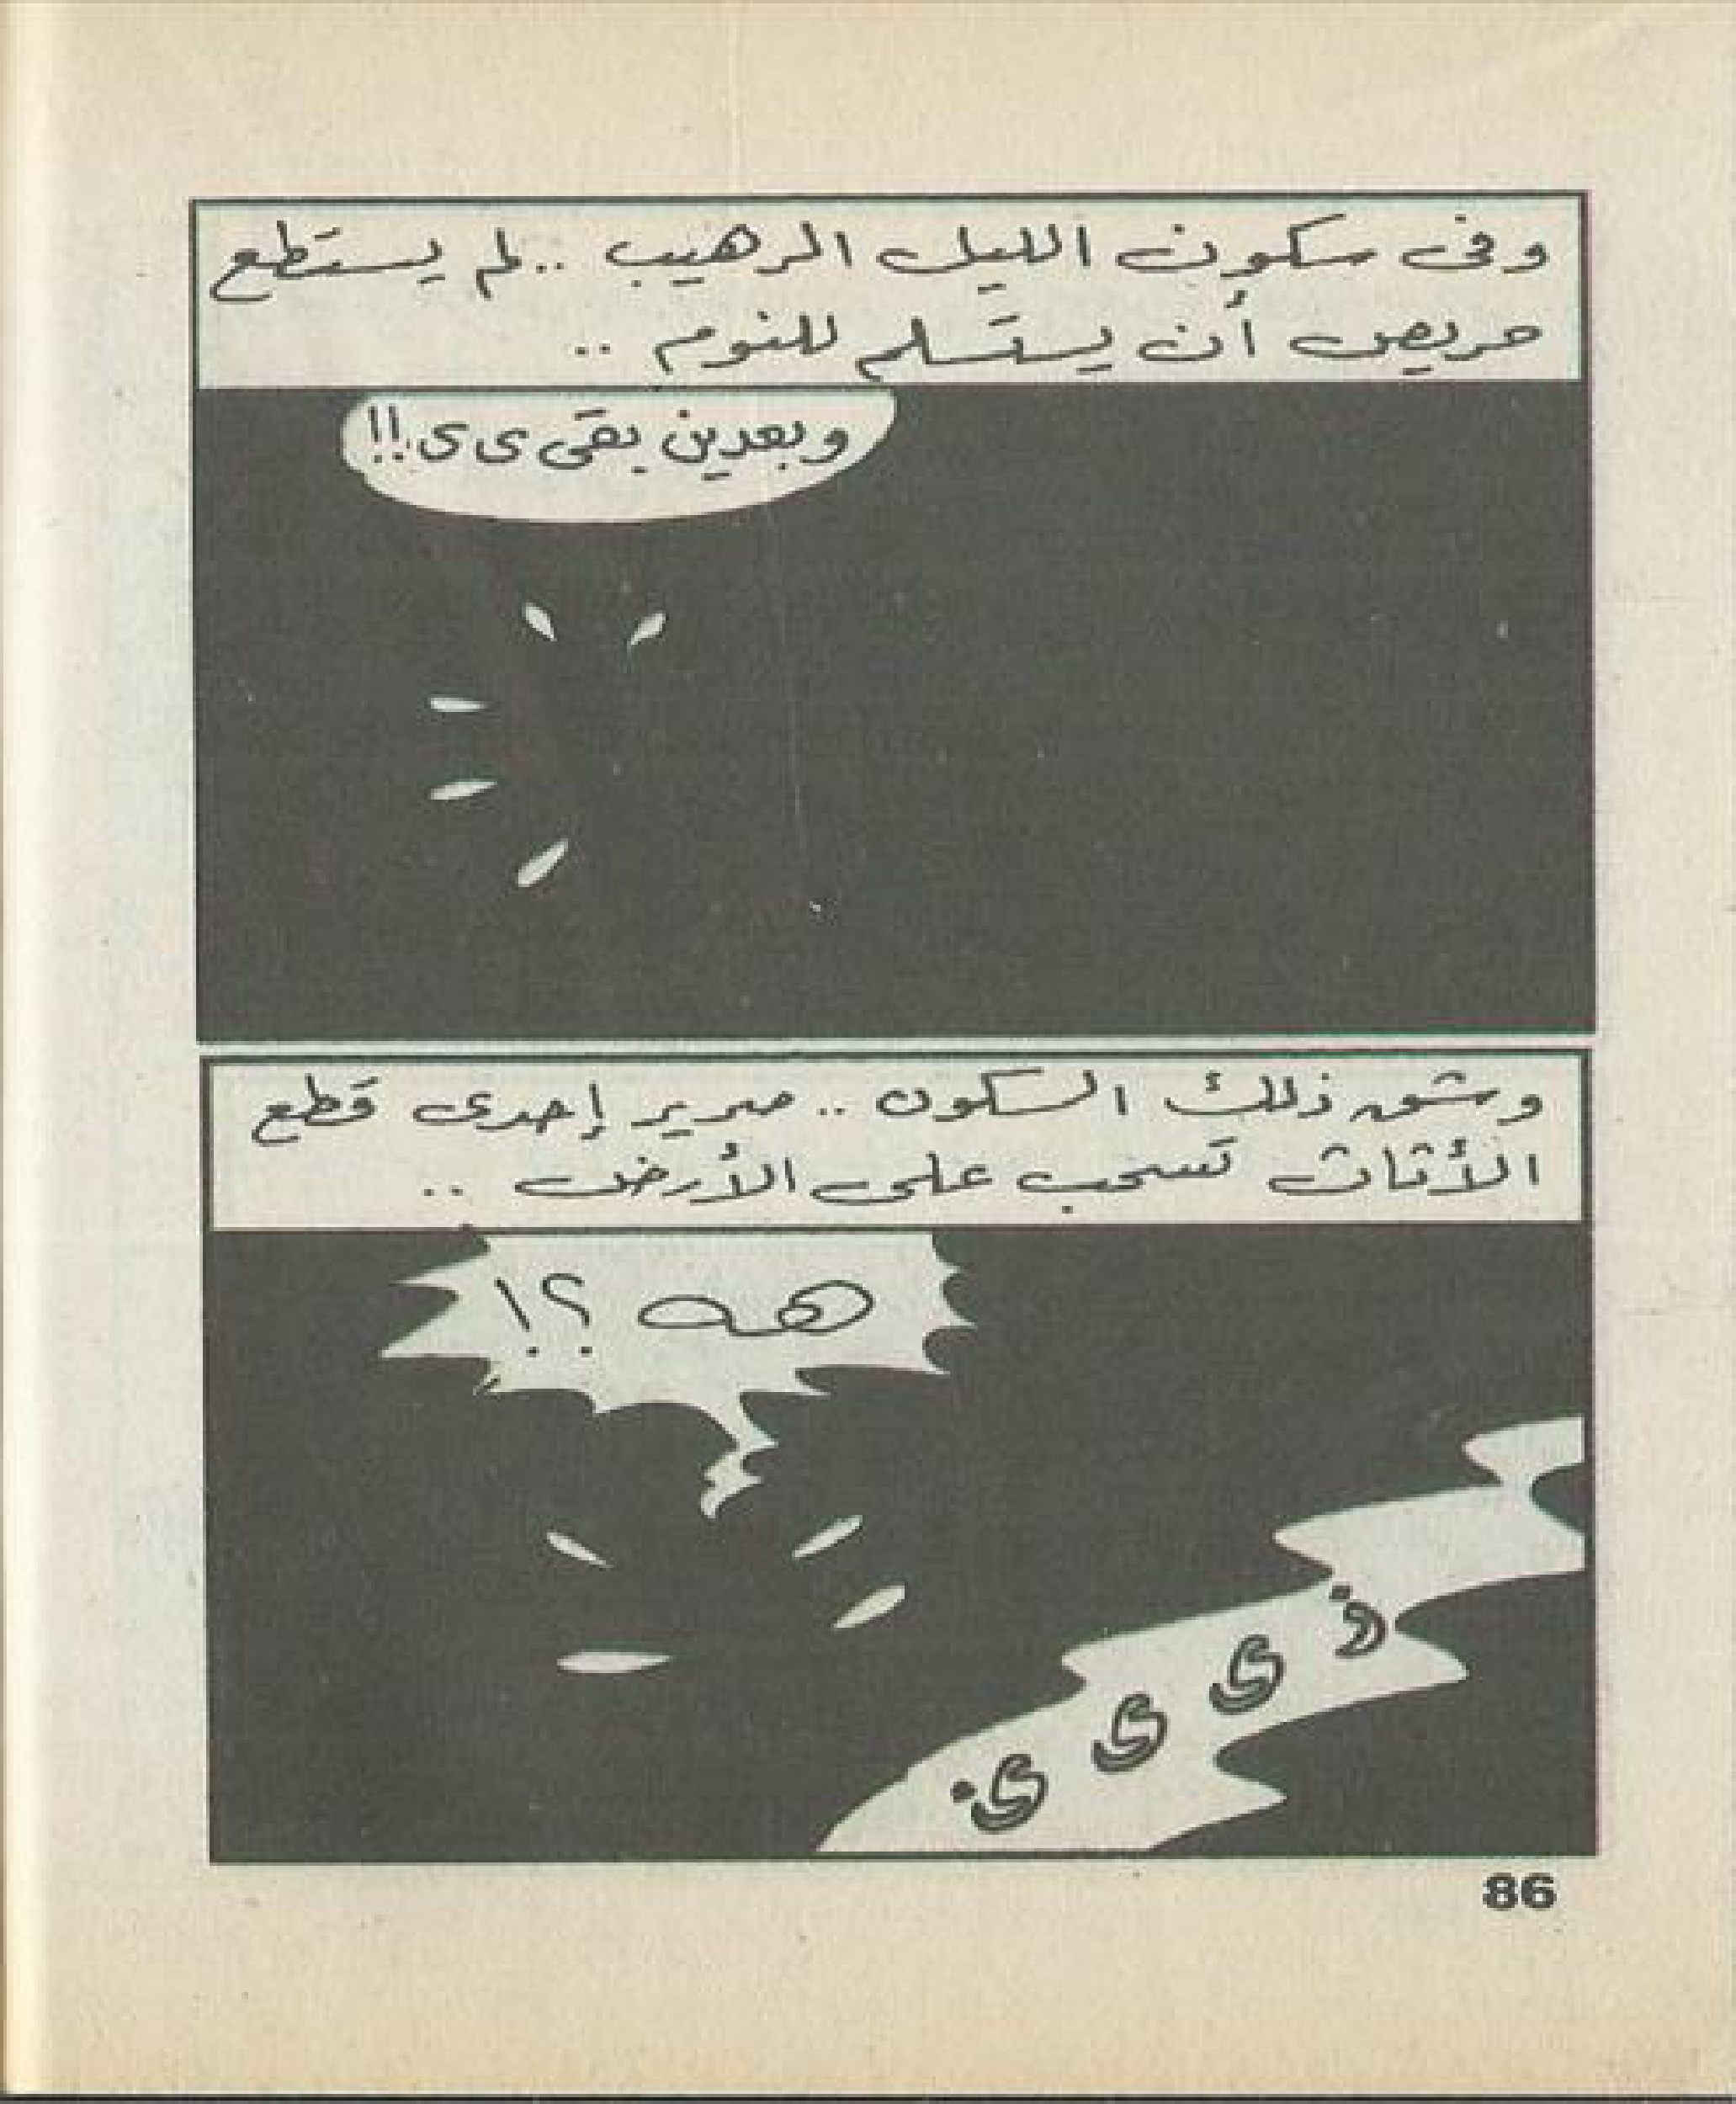 وفى سكون الليل الرهيب .. لم يستطع
حريص أن يستسلم للنوم ..
وبعدين بقى ى ى !!
وشق ذلك السكون .. صرير إحدى قطع
الأثاث تسحب على الأرض ..
هه ؟!
ذ ى ى ى .
86